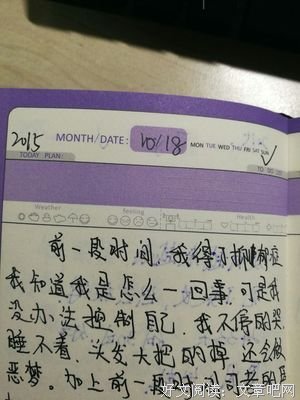 2015 MONTH/DATE: 10/18 MON TUE WED THU FRI SAT SUN
TODAY PLAN: TO DO
Weather feeling Health
前一段时间,我得了抑郁症
我知道我是怎么一回事,可是我
没办法控制自己,我不停的哭,
睡不着,头发大把的掉,还会做
恶梦。加上前一段
好文阅读:文章吧网